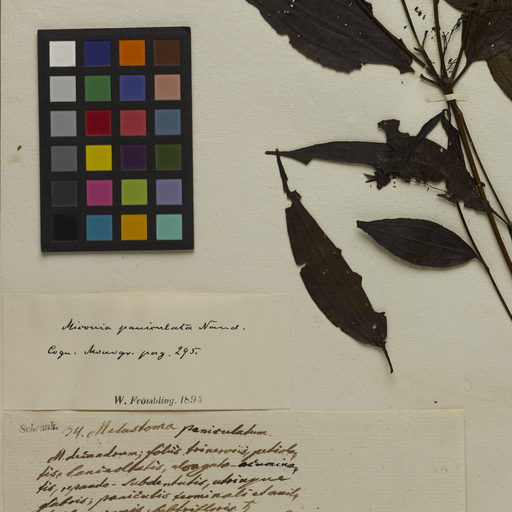 Miconia paniculata Naud.
Cogn. Monogr. pag. 295.
W. Frömbling. 1895
Schrank. 34. Melastoma paniculatum.
M. decandrum; foliis trinerviis, petiola-
tis, lanceolatis, elongato-acumina-
tis, repando-subdentatis, utrinque
glabris; paniculis terminali et axil-
subtrifloris. ♄